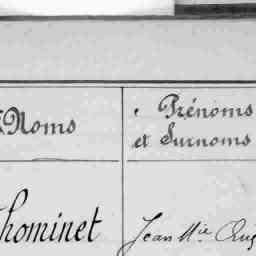 Noms
Prénoms
et Surnoms
Thominet
Jean Mie